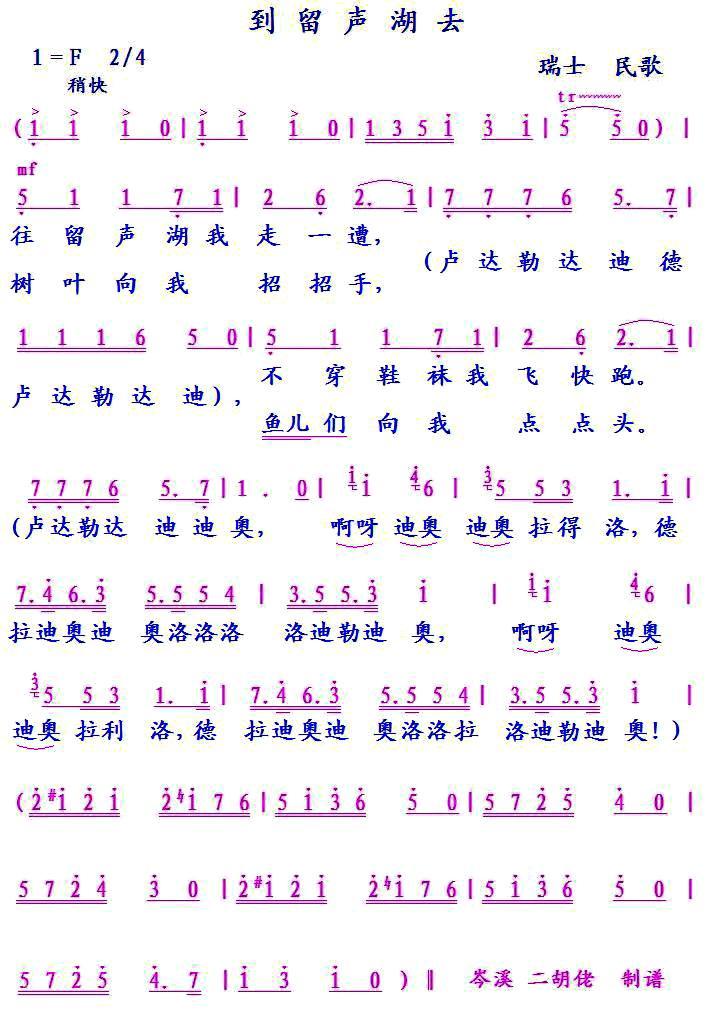 到留声湖去
1=F 2/4
瑞士 民歌
稍快
tr
(1 1 1 0|1 1 1 0|1 3 5 1 3 1|5 5 0)|
mf
5 1 1 7 1|2 6 2. 1|7 7 7 6 5. 7|
往 留 声 湖 我 走 一 遭,
(卢 达 勒 达 迪 德
树 叶 向 我 招 招 手,
1 1 1 6 5 0|5 1 1 7 1|2 6 2. 1|
不 穿 鞋 袜 我 飞 快 跑。
卢 达 勒 达 迪),
鱼儿 们 向 我 点 点 头。
7 7 7 6 5. 7|1 . 0|1 1 4 6|3 5 5 3 1. 1|
(卢达勒达 迪 迪 奥, 啊呀 迪奥 迪奥 拉得 洛,德
7.4 6.3 5.5 5 4|3.5 5.3 1|1 1 4 6|
拉迪奥迪 奥洛洛洛 洛迪勒迪 奥, 啊呀 迪奥
3 5 5 3 1. 1|7.4 6.3 5.5 5 4|3.5 5.3 1|
迪奥 拉利 洛,德 拉迪奥迪 奥洛洛拉 洛迪勒迪 奥!)
(2 #1 2 1 2 ♮1 7 6|5 1 3 6 5 0|5 7 2 5 4 0|
5 7 2 4 3 0|2 #1 2 1 2 ♮1 7 6|5 1 3 6 5 0|
5 7 2 5 4. 7|1 3 1 0)‖ 岑溪 二胡佬 制谱